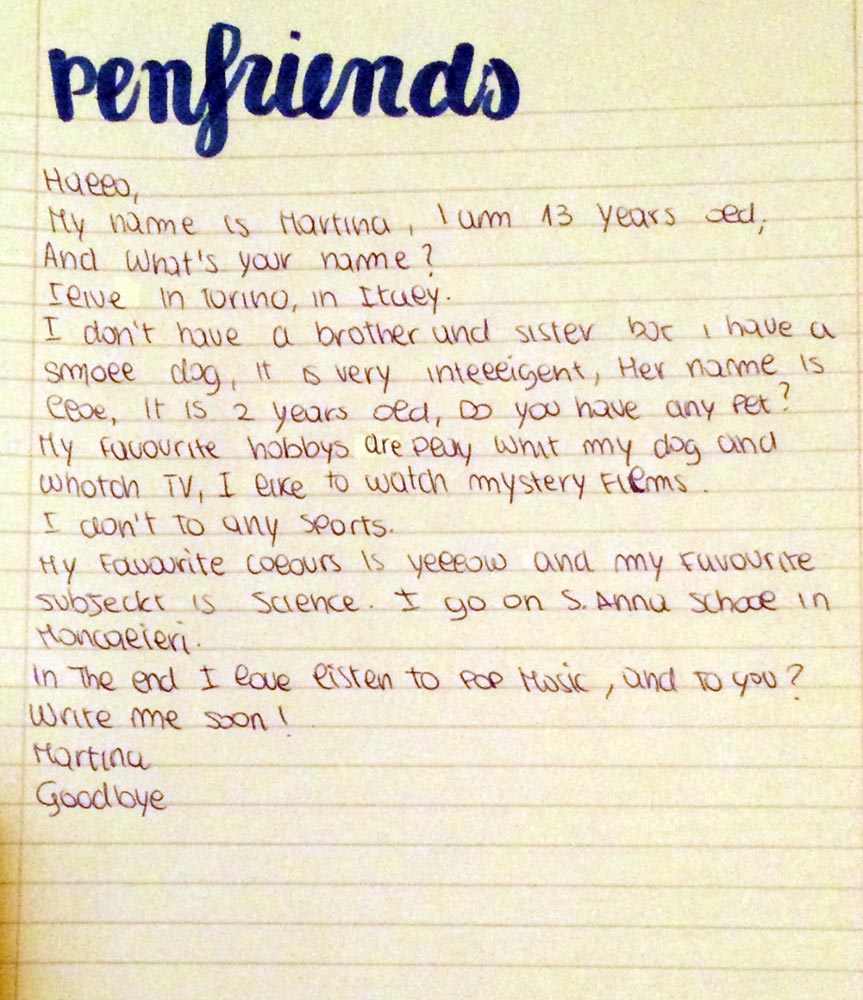 penfriends
Hallo,
My name is Martina, I am 13 years old,
And What's your name?
I live in Torino, in Italy.
I don't have a brother and sister but i have a
smoll dog, it is very intelligent, Her name is
Cloe, It is 2 years old, Do you have any pet?
My favourite hobbys are play whit my dog and
whotch TV, I like to watch mystery Films.
I don't to any sports.
My Favourite colours is yellow and my favourite
subjeckt is Science. I go on S. Anna school in
Moncalieri.
In The end I love listen to POP Music, and to you?
Write me soon!
Martina
Goodbye